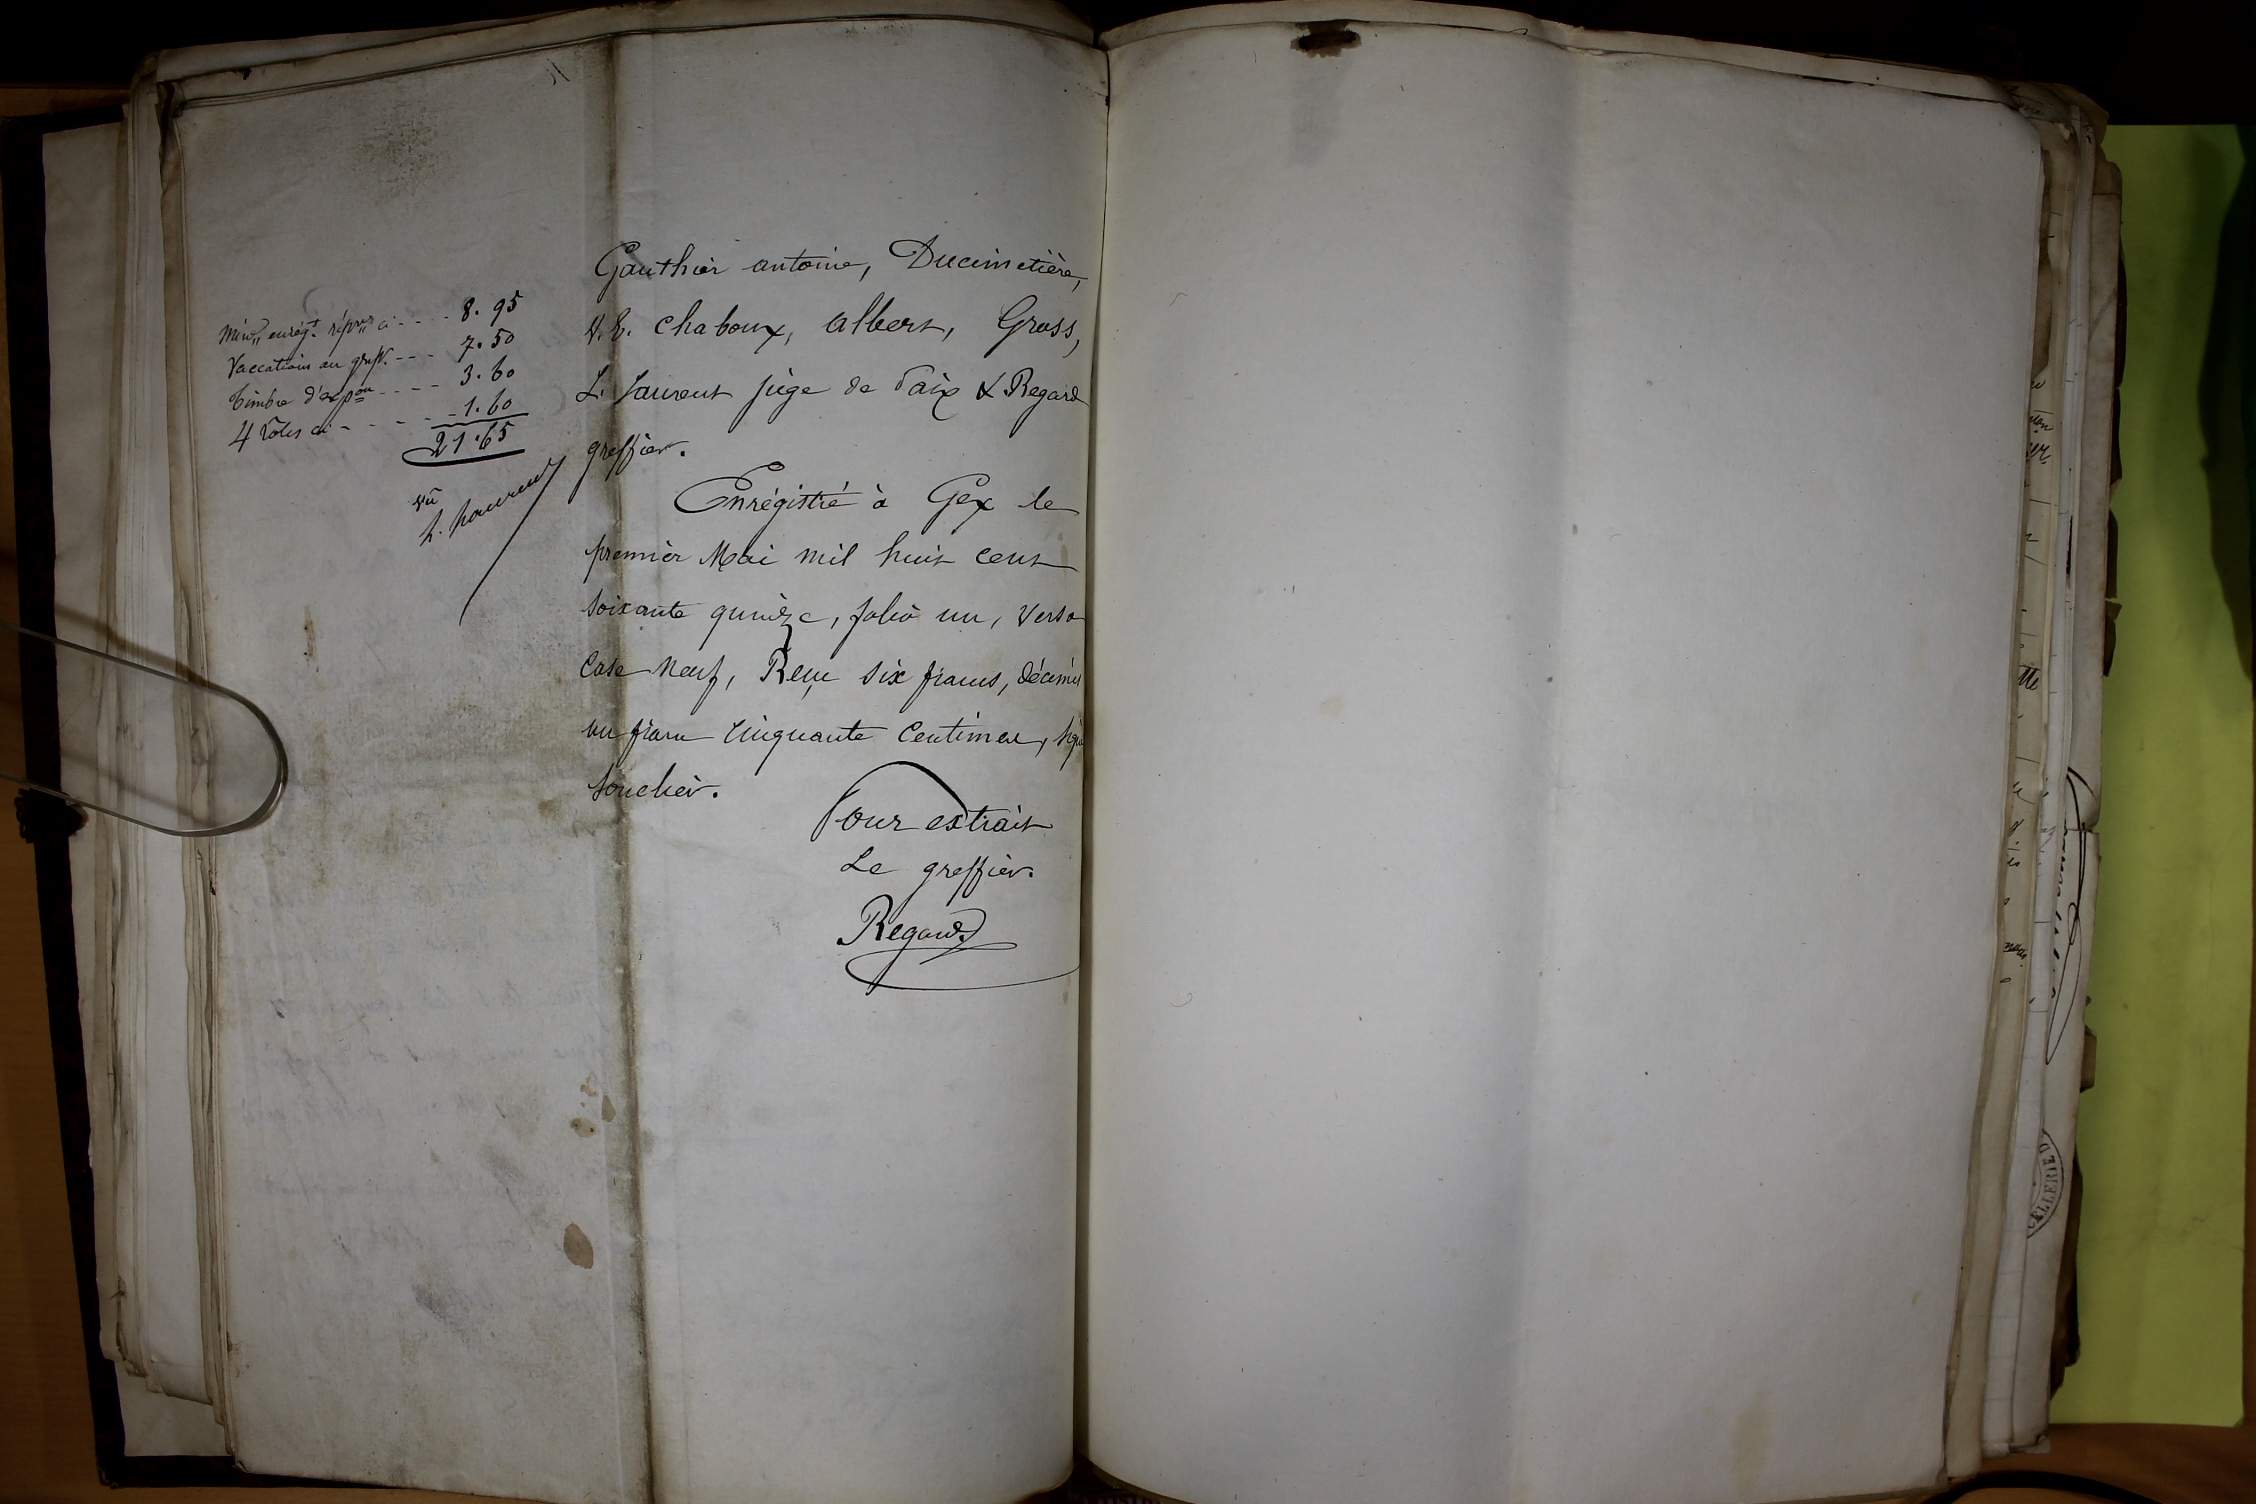 Minte enregt réptre ci - - - 8.95
Vaccations au greffe - - - 7.50
timbre d'expon - - - - 3.60
4 rôles ci - - - - 1.60
21.65
vu
L. Laurent
Gauthier antoine, Ducimetière,
V. E. Chaboux, Albert, Gross,
L. Laurent juge de Paix & Regard
greffier.
Enrégistré à Gex le
premier Mai mil huit cent
soixante quinze, folio un, verso
Case neuf, Reçu six francs, décimes
un franc cinquante Centimes, signé
Souchier.
Pour extrait
Le greffier.
Regard
CELLERIE D